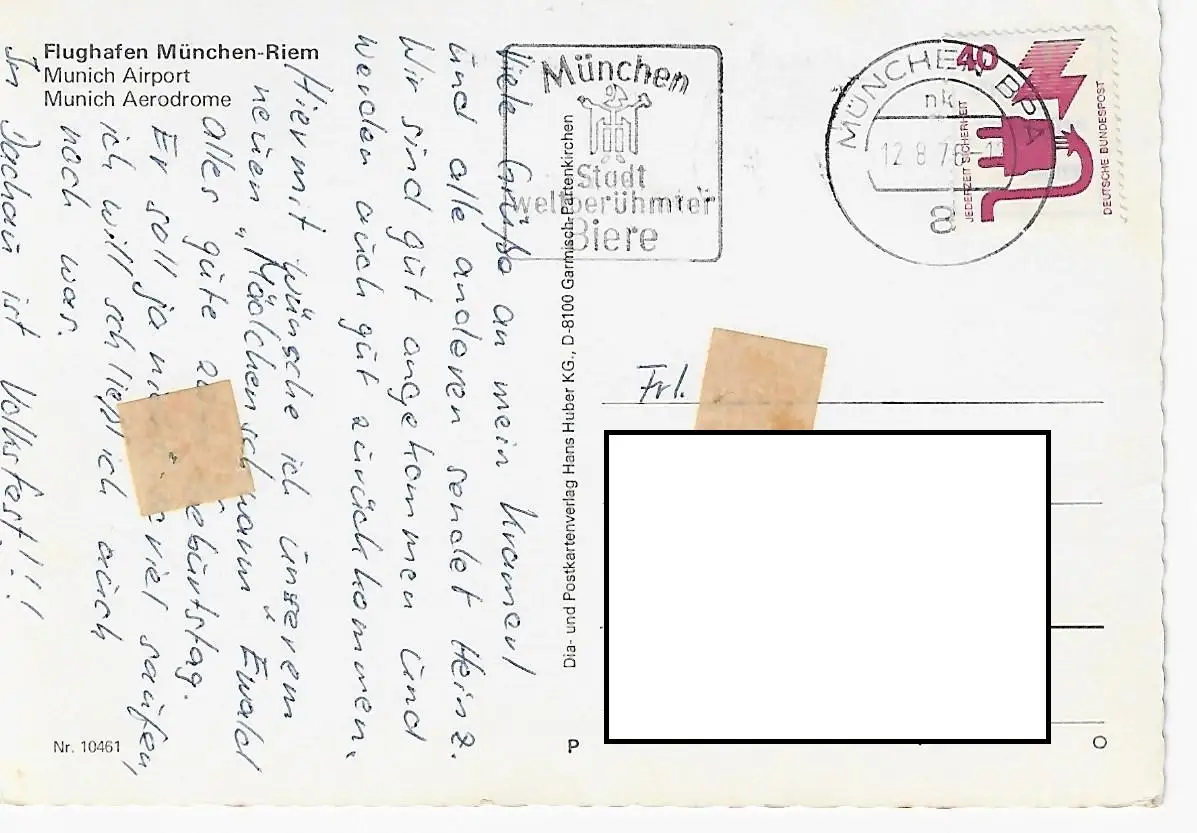 Flughafen München-Riem
Munich Airport
Munich Aerodrome
München
Stadt
weltberühmter
Biere
MÜNCHEN BPA
nk
12 8 7
a
40
JEDERZEIT SICHERHEIT
DEUTSCHE BUNDESPOST
Viele Grüße an mein Kramerl
und alle anderen sendet Heinz.
Wir sind gut angekommen und
werden auch gut zurückkommen.
Hiermit wünsche ich unserem
neuen "Mädchenschwarm" Ewald
alles gute
Er soll ja saufen,
ich will schließlich auch
noch was.
In Dachau ist Volksfest!!!
Dia- und Postkartenverlag Hans Huber KG., D-8100 Garmisch-Partenkirchen
Frl.
Nr. 10461
P
O